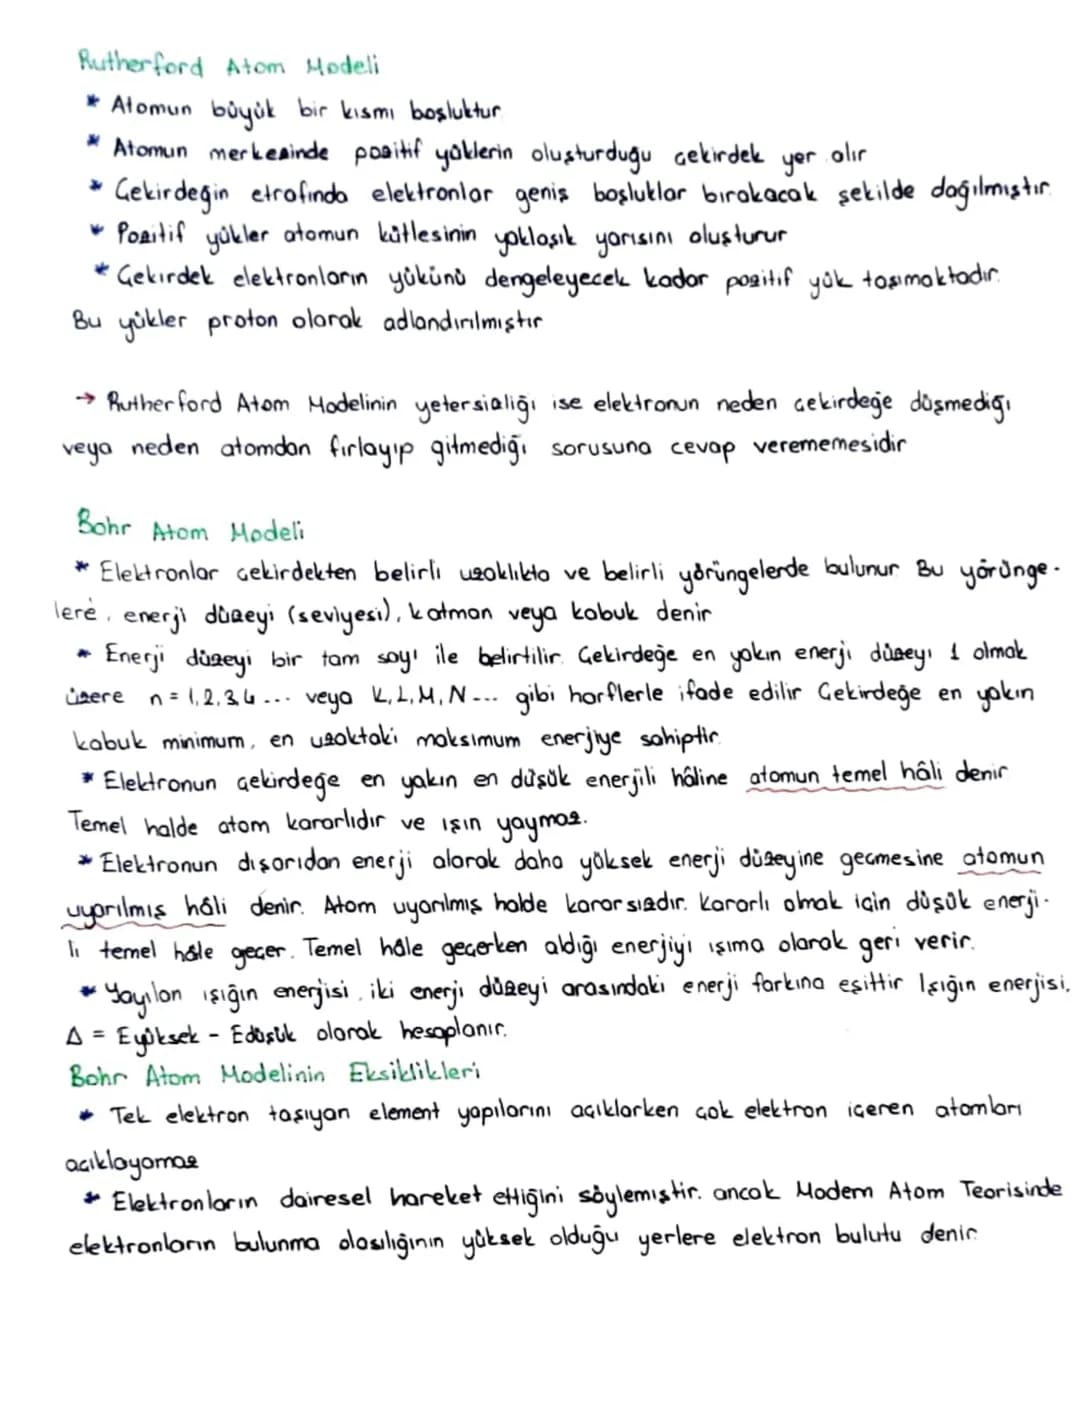 Rutherford Atom Modeli
* Atomun büyük bir kısmı boşluktur
* Atomun merkezinde pozitif yüklerin oluşturduğu çekirdek yer alır
* Çekirdeğin etrafında elektronlar geniş boşluklar bırakacak şekilde dağılmıştır.
* Pozitif yükler atomun kütlesinin yaklaşık yarısını oluşturur
* Çekirdek elektronların yükünü dengeleyecek kadar pozitif yük taşımaktadır.
Bu yükler proton olarak adlandırılmıştır
→ Rutherford Atom Modelinin yetersizliği ise elektronun neden çekirdeğe düşmediği
veya neden atomdan fırlayıp gitmediği sorusuna cevap verememesidir
Bohr Atom Modeli
* Elektronlar çekirdekten belirli uzaklıkta ve belirli yörüngelerde bulunur. Bu yörünge-
lere, enerji düzeyi (seviyesi), katman veya kabuk denir
* Enerji düzeyi bir tam sayı ile belirtilir. Çekirdeğe en yakın enerji düzeyi 1 olmak
üzere n = 1,2,3,4... veya K,L,M,N... gibi harflerle ifade edilir Çekirdeğe en yakın
kabuk minimum, en uzaktaki maksimum enerjiye sahiptir.
* Elektronun çekirdeğe en yakın en düşük enerjili hâline atomun temel hâli denir
Temel halde atom kararlıdır ve ışın yaymaz.
* Elektronun dışarıdan enerji alarak daha yüksek enerji düzeyine geçmesine atomun
uyarılmış hâli denir. Atom uyarılmış halde kararsızdır. Kararlı olmak için düşük enerji-
li temel hâle geçer. Temel hâle geçerken aldığı enerjiyi ışıma olarak geri verir.
* Yayılan ışığın enerjisi, iki enerji düzeyi arasındaki enerji farkına eşittir Işığın enerjisi,
Δ = Eyüksek - Edüşük olarak hesaplanır.
Bohr Atom Modelinin Eksiklikleri
* Tek elektron taşıyan element yapılarını açıklarken çok elektron içeren atomları
açıklayamaz
* Elektronların dairesel hareket ettiğini söylemiştir. ancak Modern Atom Teorisinde
elektronların bulunma olasılığının yüksek olduğu yerlere elektron bulutu denir.